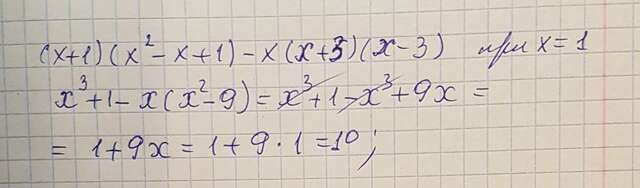 (x+1)(x²-x+1)-x(x+3)(x-3) при x=1
x³+1-x(x²-9)=x³+1-x³+9x=
=1+9x=1+9·1=10;